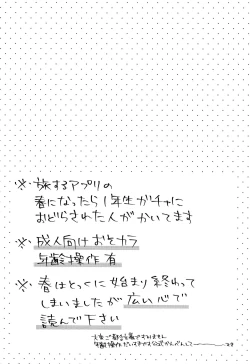 ※・旅するアプリの
春になったら1年生ガチャに
おどらされた人がかいてます
※・成人向けおそカラ
年齢操作 有
※・春はとっくに始まり終わって
しまいましたが広い心で
読んで下さい